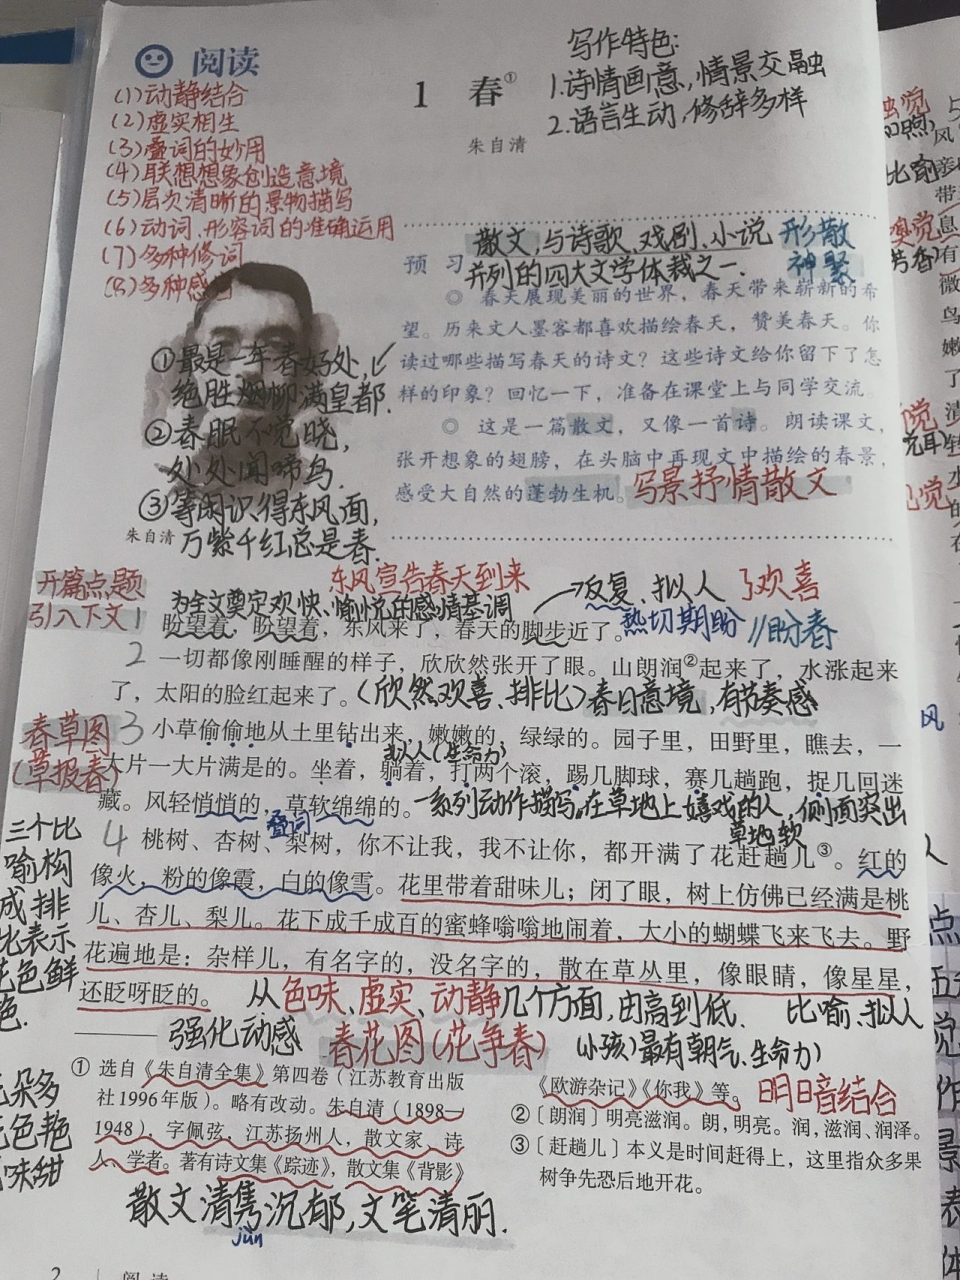 阅读
写作特色:
1 春①
1.诗情画意,情景交融
2.语言生动,修辞多样
朱自清
(1)动静结合
(2)虚实相生
(3)叠词的妙用
(4)联想想象创造意境
(5)层次清晰的景物描写
(6)动词、形容词的准确运用
(7)多种修词
(8)多种感
散文,与诗歌、戏剧、小说
并列的四大文学体裁之一.
形散
神聚
预 习
◎ 春天展现美丽的世界，春天带来崭新的希
望。历来文人墨客都喜欢描绘春天，赞美春天。你
读过哪些描写春天的诗文？这些诗文给你留下了怎
样的印象？回忆一下，准备在课堂上与同学交流。
◎ 这是一篇散文，又像一首诗。朗读课文，
张开想象的翅膀，在头脑中再现文中描绘的春景，
感受大自然的蓬勃生机。
写景抒情散文
①最是一年春好处,
绝胜烟柳满皇都.
②春眠不觉晓,
处处闻啼鸟.
③等闲识得东风面,
万紫千红总是春.
朱自清
开篇点题
引入下文
东风宣告春天到来
为全文奠定欢快、愉悦的感情基调
反复、拟人
欢喜
热切期盼
盼春
1 盼望着，盼望着，东风来了，春天的脚步近了。
2 一切都像刚睡醒的样子，欣欣然张开了眼。山朗润②起来了，水涨起来
了，太阳的脸红起来了。
(欣然欢喜、排比)春日意境,有节奏感
春草图
(草报春)
3 小草偷偷地从土里钻出来，嫩嫩的，绿绿的。园子里，田野里，瞧去，一
拟人(生命力)
大片一大片满是的。坐着，躺着，打两个滚，踢几脚球，赛几趟跑，捉几回迷
藏。风轻悄悄的，草软绵绵的。
一系列动作描写。在草地上嬉戏的人,侧面突出
草地软
叠词
4 桃树、杏树、梨树，你不让我，我不让你，都开满了花赶趟儿③。红的
像火，粉的像霞，白的像雪。花里带着甜味儿；闭了眼，树上仿佛已经满是桃
儿、杏儿、梨儿。花下成千成百的蜜蜂嗡嗡地闹着，大小的蝴蝶飞来飞去。野
花遍地是：杂样儿，有名字的，没名字的，散在草丛里，像眼睛，像星星，
还眨呀眨的。
三个比
喻构
成排
比表示
花色鲜
艳.
从色味、虚实、动静几个方面,由高到低.
比喻、拟人
强化动感
春花图(花争春)
(小孩)最有朝气、生命力)
花朵多
花色艳
味甜
① 选自《朱自清全集》第四卷（江苏教育出版
社1996年版）。略有改动。朱自清（1898—
1948），字佩弦，江苏扬州人，散文家、诗
人、学者。著有诗文集《踪迹》，散文集《背影》
《欧游杂记》《你我》等。
明暗结合
②〔朗润〕明亮滋润。朗，明亮。润，滋润、润泽。
③〔赶趟儿〕本义是时间赶得上，这里指众多果
树争先恐后地开花。
散文清隽沉郁,文笔清丽.
jùn
2 | 阅 读